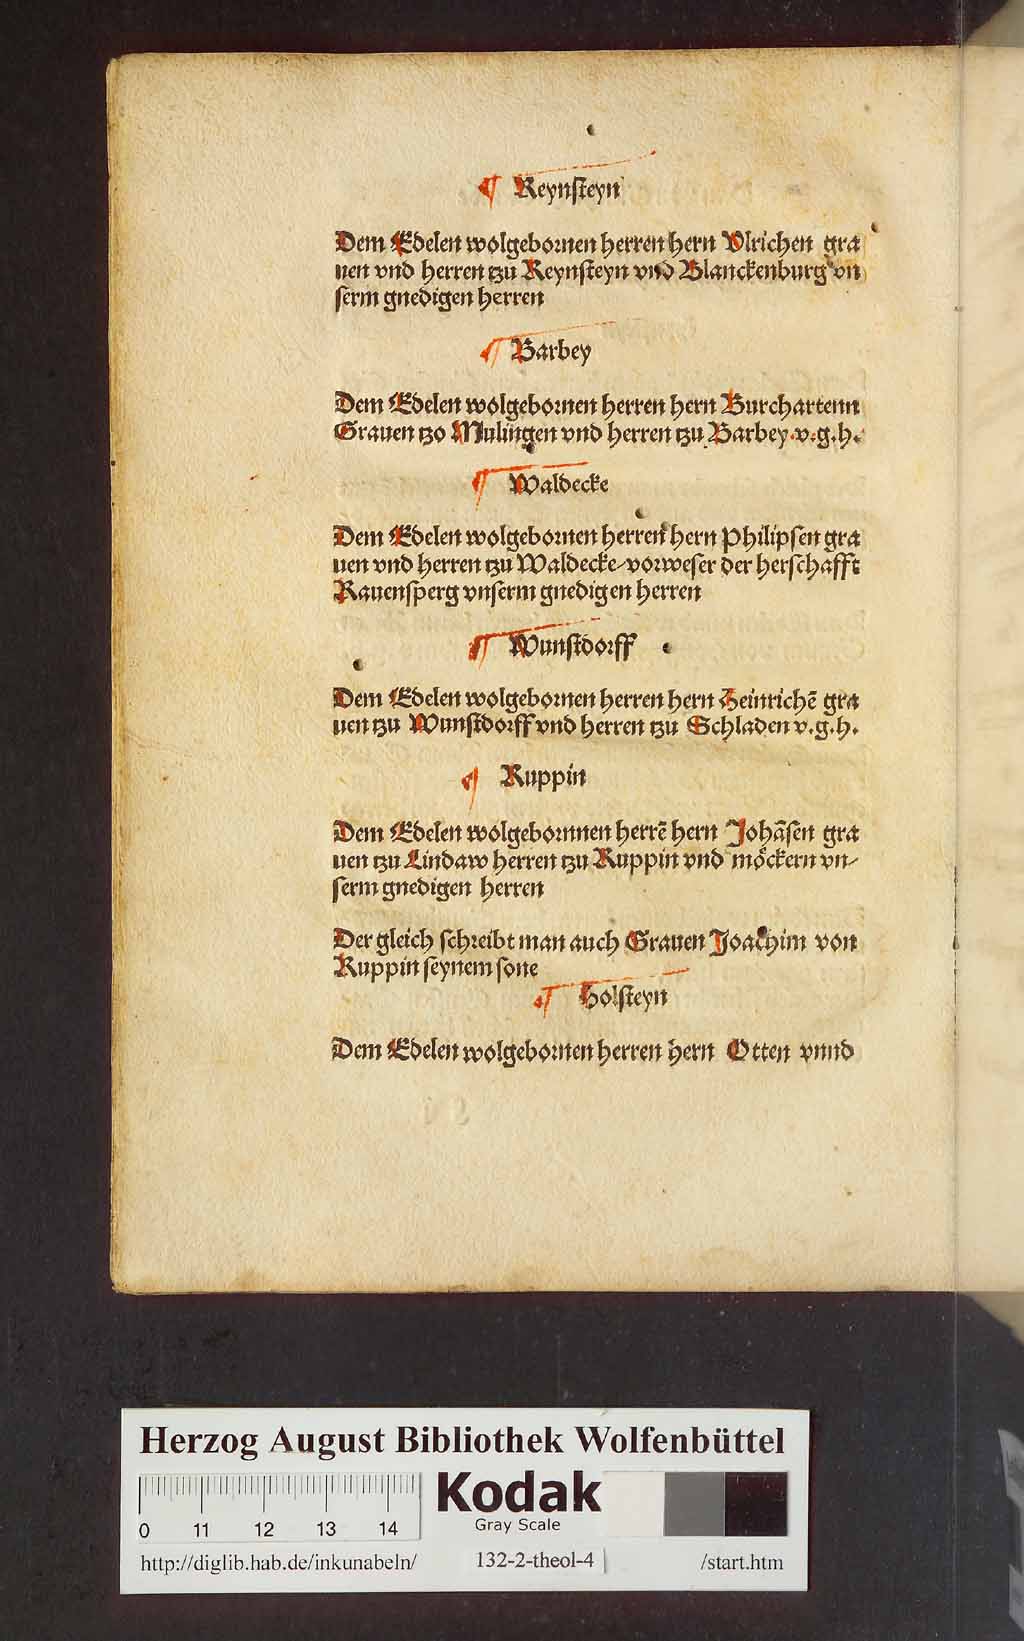 ¶ Reynſteyn
Dem Edelen wolgebornen herren hern Vlrichen gra
uen vnd herren tzu Reynſteyn vnd Blanckenburg vn
ſerm gnedigen herren
¶ Barbey
Dem Edelen wolgebornen herren hern Burchartenn
Grauen tzo Mulingen vnd herren tzu Barbey.v.g.h.
¶ Waldecke
Dem Edelen wolgebornen herren hern Philipſen gra
uen vnd herren tzu Waldecke/vorweſer der herſchafft
Rauenſperg vnſerm gnedigen herren
¶ Wunſtdorff
Dem Edelen wolgebornen herren hern Heinrichē gra
uen tzu Wunſtdorff vnd herren tzu Schladen v.g.h.
¶ Ruppin
Dem Edelen wolgebornnen herrē hern Johāſen gra
uen tzu Lindaw herren tzu Ruppin vnd moͤckern vn/
ſerm gnedigen herren
Der gleich ſchreibt man auch Grauen Joachim von
Ruppin ſeynem ſone
¶ Holſteyn
Dem Edelen wolgebornen herren hern Otten vnnd
Herzog August Bibliothek Wolfenbüttel
Kodak
Gray Scale
0 11 12 13 14
http://diglib.hab.de/inkunabeln/ 132-2-theol-4 /start.htm